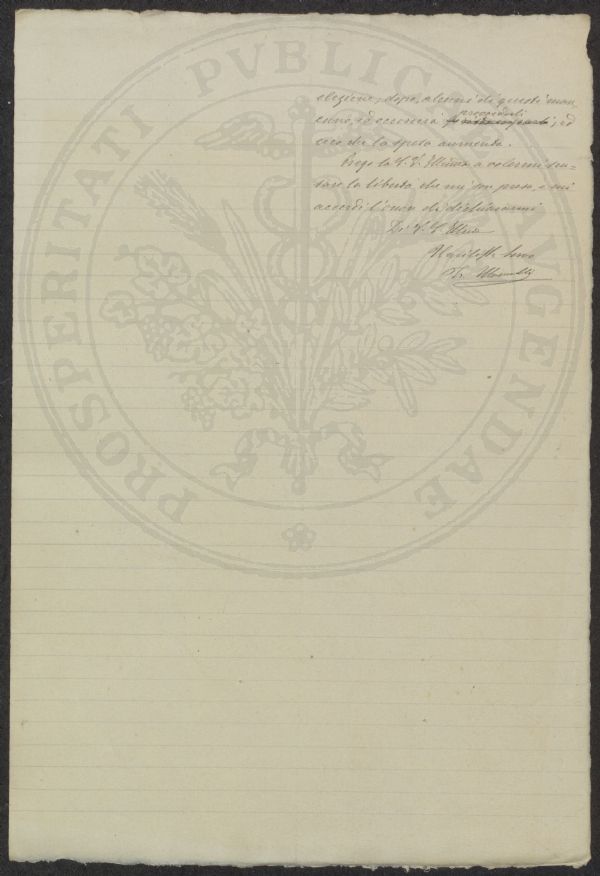 PROSPERITATI PVBLICAE AVGENDAE
elezione; dopo, alcuni di questi man-
provvederli
cano, ed occorrerà ; ed
ecco che la spesa aumenta.
Prego la S. V. Illma a volermi scu-
sare la libertà che mi son preso, e mi
accordi l'onore di dichiararmi
Di V. S. Illma
servo